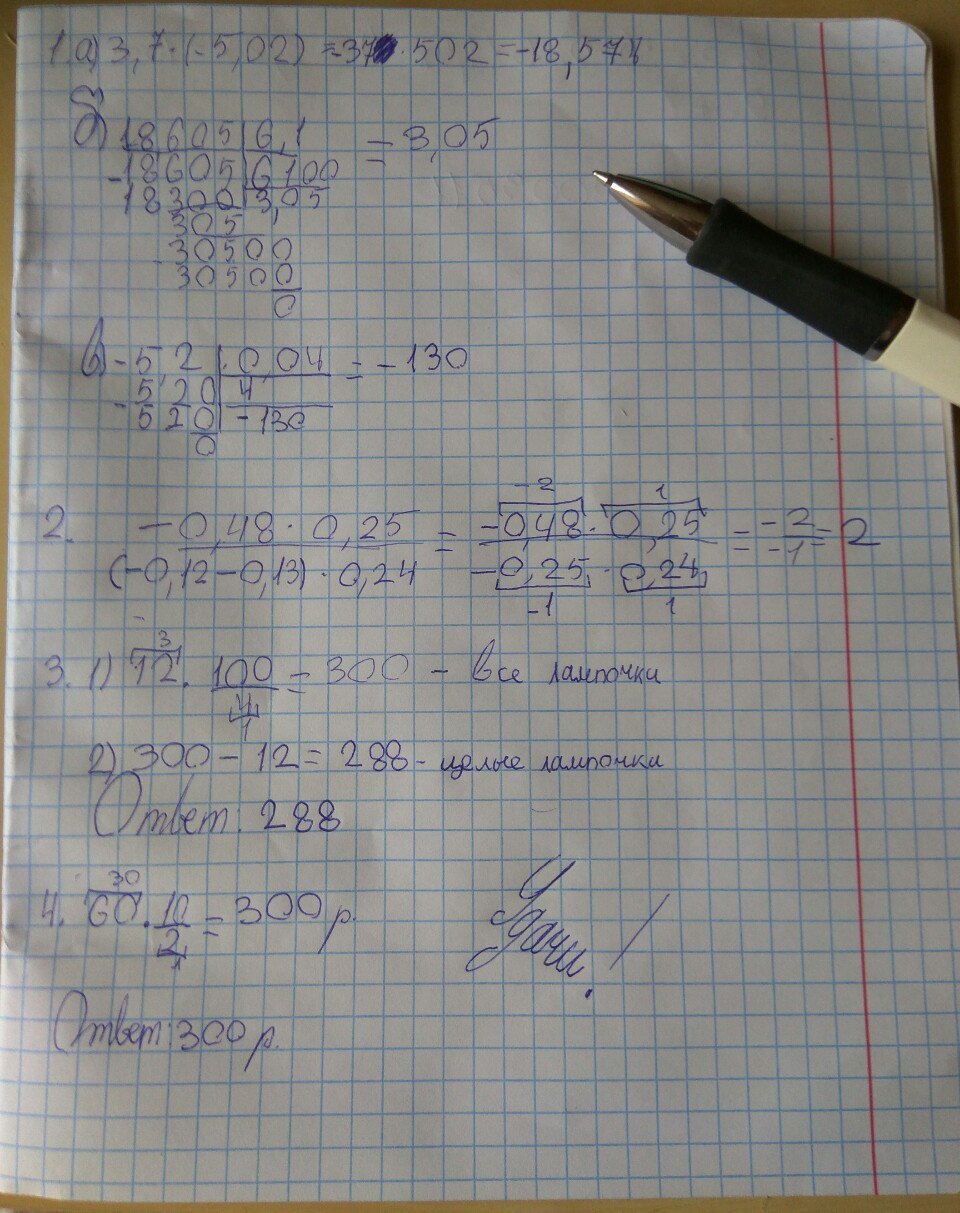 1. а) 3,7·(-5,02) = -37·502 = -18,574
б) 18605 | 6,1 = 3,05
-18605 | 6100
18300 | 3,05
305
-30500
30500
0
в) -5,2 · 0,04 = -130
5,20 | 4
-520 | -130
0
-2 1
2. -0,48·0,25 = -0,48·0,25 = -2 = 2
(-0,12-0,13)·0,24 -0,25·0,24 -1
-1 1
3
3. 1) 12·100 = 300 - все лампочки
4
1
2) 300 - 12 = 288 - целые лампочки
Ответ: 288
30
4. 60·10 = 300 р.
2
1
Удачи!
Ответ: 300 р.